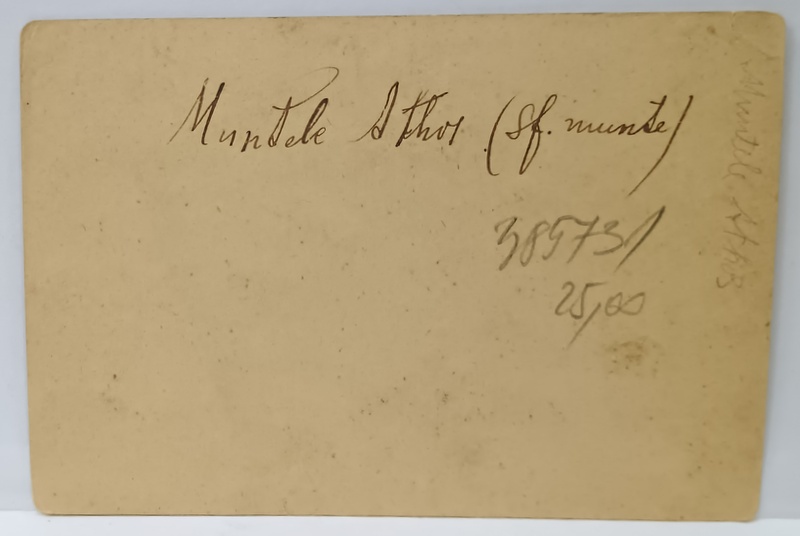 Muntele Athos (sf. munte)
38573/
25,00
Muntele Athos